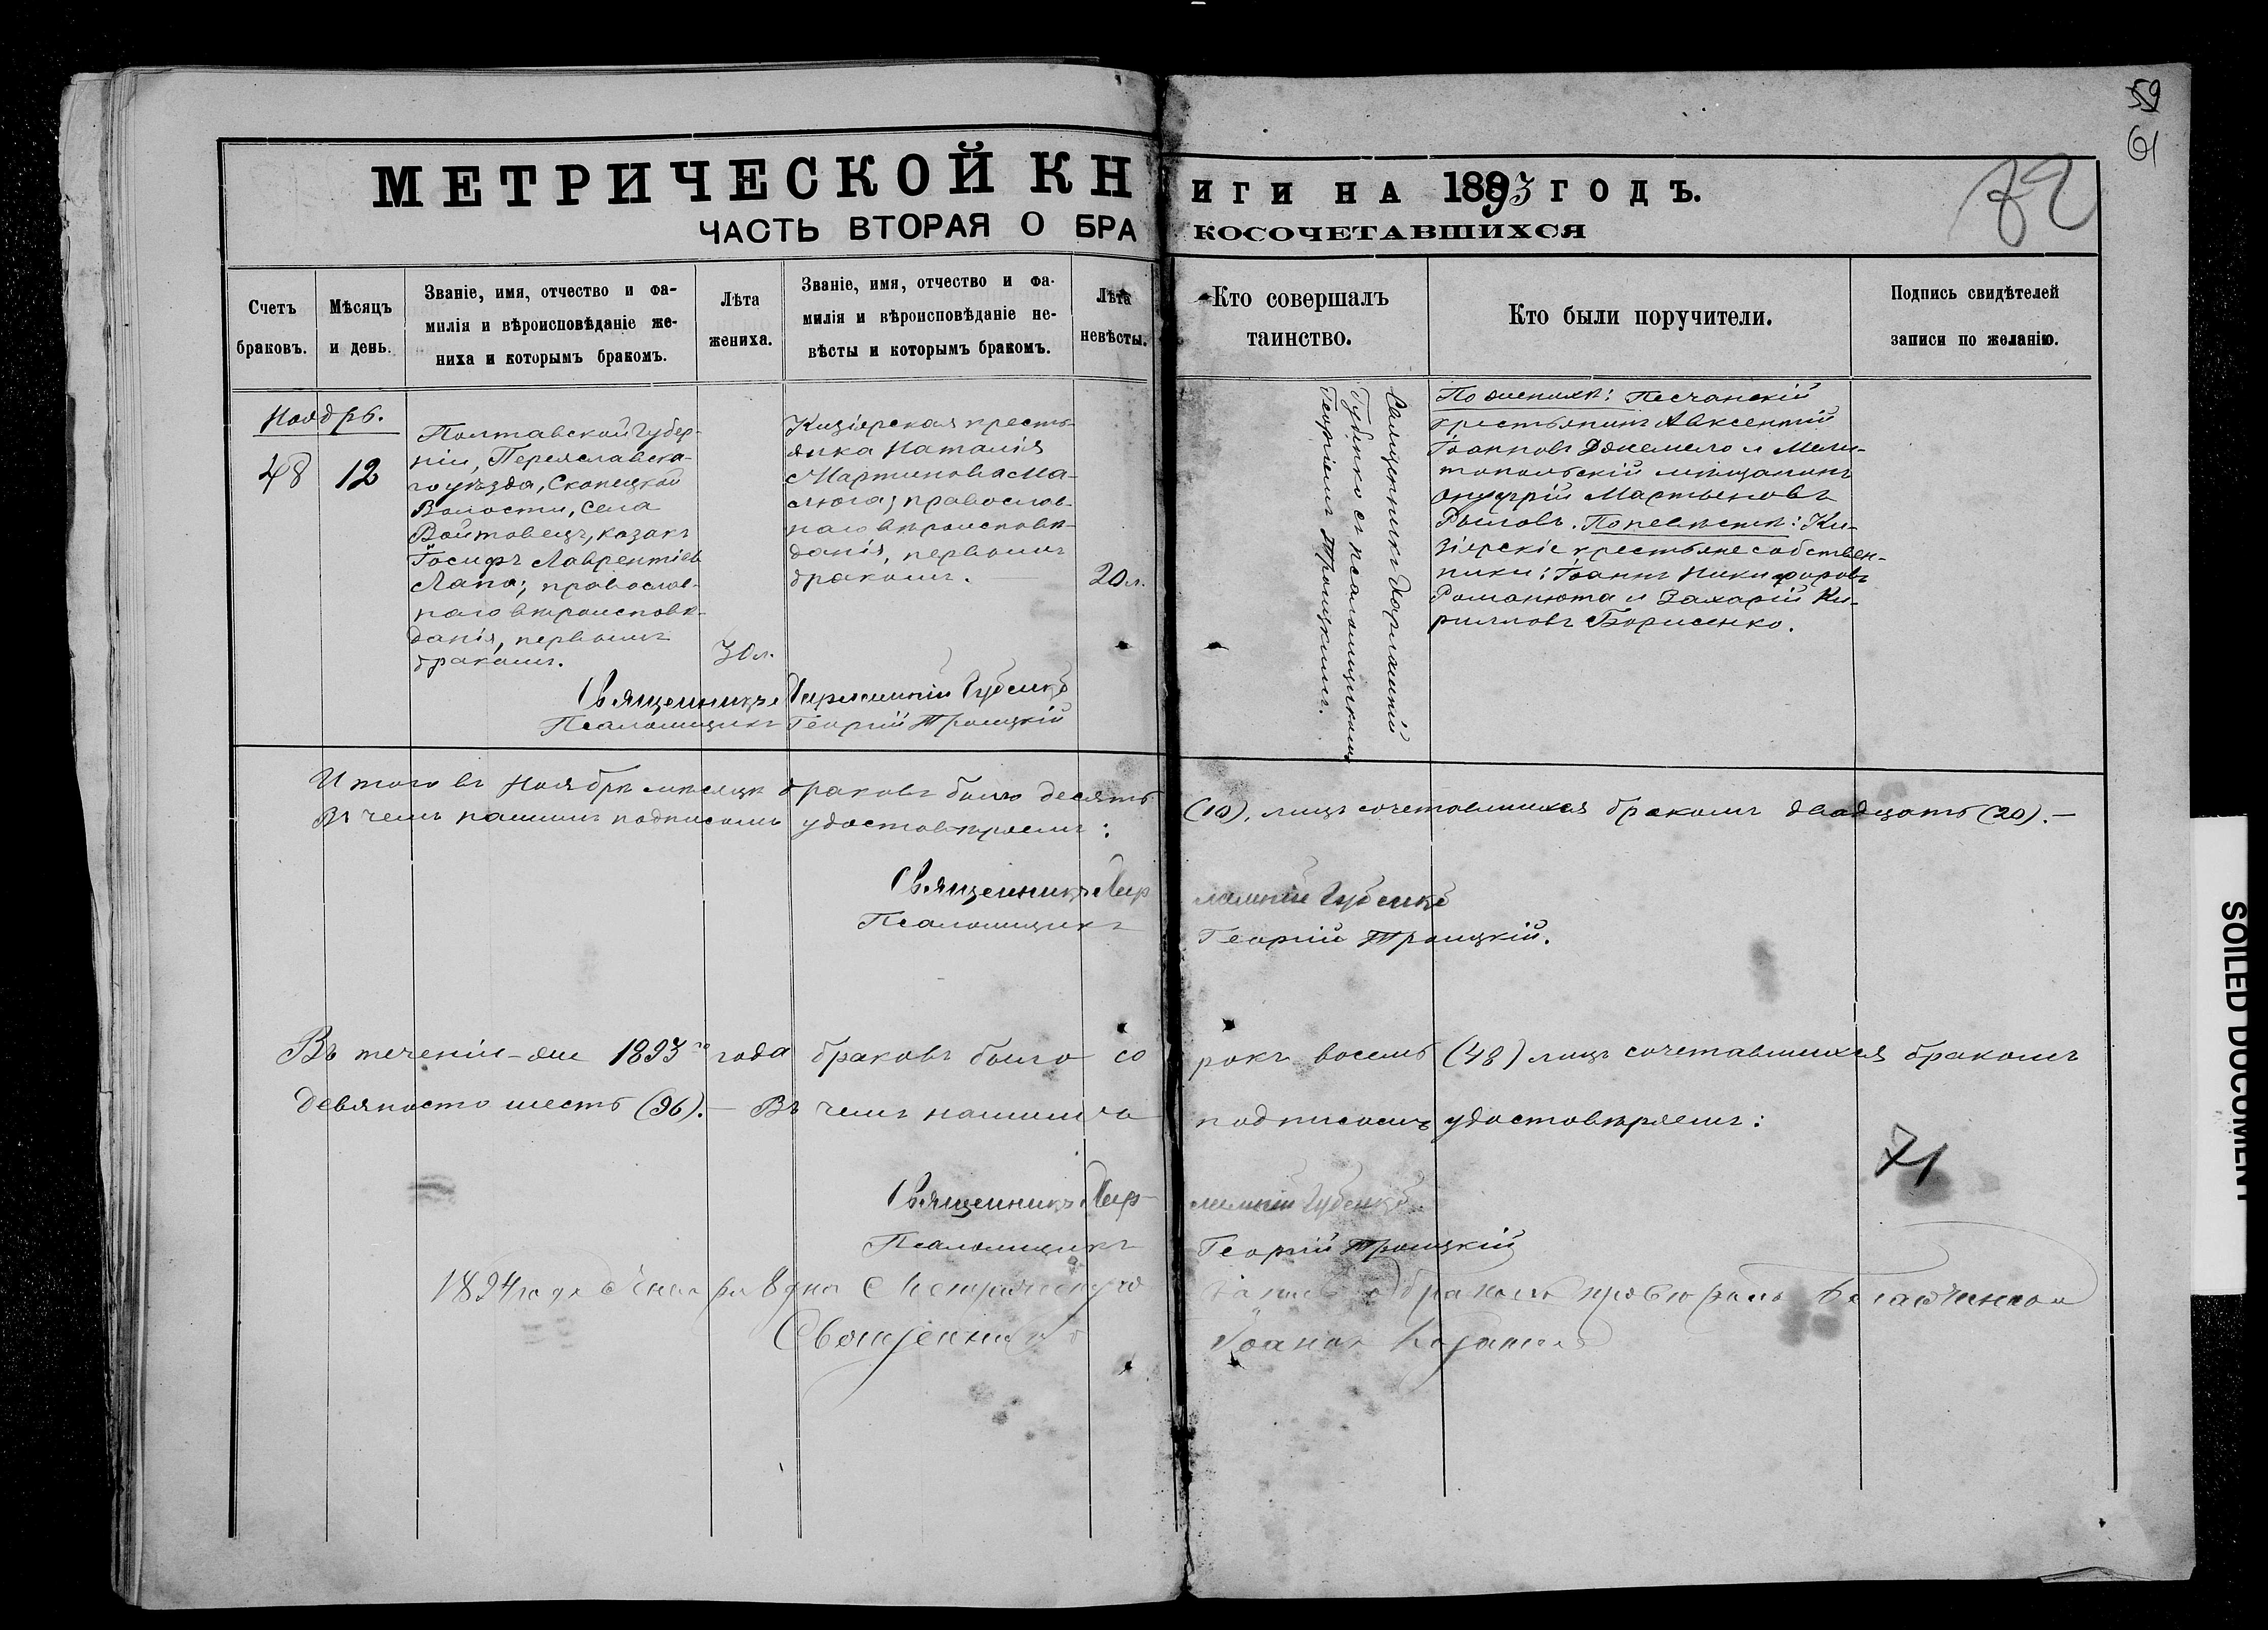 59
61
72
МЕТРИЧЕСКОЙ КНИГИ НА 1893 ГОДЪ.
ЧАСТЬ ВТОРАЯ О БРАКОСОЧЕТАВШИХСЯ
Счетъ
браковъ.
Мѣсяцъ
и день.
Званіе, имя, отчество и фа-
милія и вѣроисповѣданіе же-
ниха и которымъ бракомъ.
Лѣта
жениха.
Званіе, имя, отчество и фа-
милія и вѣроисповѣданіе не-
вѣсты и которымъ бракомъ.
Лѣта
невѣсты.
Кто совершалъ
таинство.
Кто были поручители.
Подпись свидѣтелей
записи по желанію.
Ноябрь.
48
12
Полтавской Губер-
ніи, Переяславска-
го уѣзда, Скопецкой
Волости, села
Войтовецъ, казакъ
Іосифъ Лаврентіевъ
Лапа; православ-
наго вѣроисповѣ-
данія, первымъ
бракомъ.
30 л.
Кизіярская кресть-
янка Наталія
Мартинова Ма-
люга; православ-
наго вѣроисповѣ-
данія, первымъ
бракомъ.
20 л.
Священникъ Харлампій
Губенко съ псаломщикомъ
Георгіемъ Троицкимъ.
По женихѣ: Песчанскій
крестьянинъ Авксентій
Іоанновъ Джемело и Мели-
топольскій мѣщанинъ
Онуфрій Мартыновъ
Рыловъ. По невѣстѣ: Ки-
зіярскіе крестьяне собствен-
ники: Іоаннъ Никифоровъ
Романюта и Захарій Ки-
рилловъ Борисенко.
Священникъ Харлампій Губенко
Псаломщикъ Георгій Троицкій
Итого въ Ноябрѣ мѣсяцѣ браковъ было десять (10), лицъ сочетавшихся бракомъ двадцать (20). —
Въ чемъ нашимъ подписомъ удостовѣряемъ:
Священникъ Харлампій Губенко
Псаломщикъ Георгій Троицкій.
Въ теченіи-же 1893 го года браковъ было сорокъ восемь (48) лицъ сочетавшихся бракомъ
девяносто шесть (96). — Въ чемъ нашимъ подписомъ удостовѣряемъ:
71
Священникъ Харлампій Губенко
Псаломщикъ Георгій Троицкій
1894 года Января 8 дня Метрическую о бракахъ Благочинный
Священникъ Іоаннъ
SOILED DOCUMENT